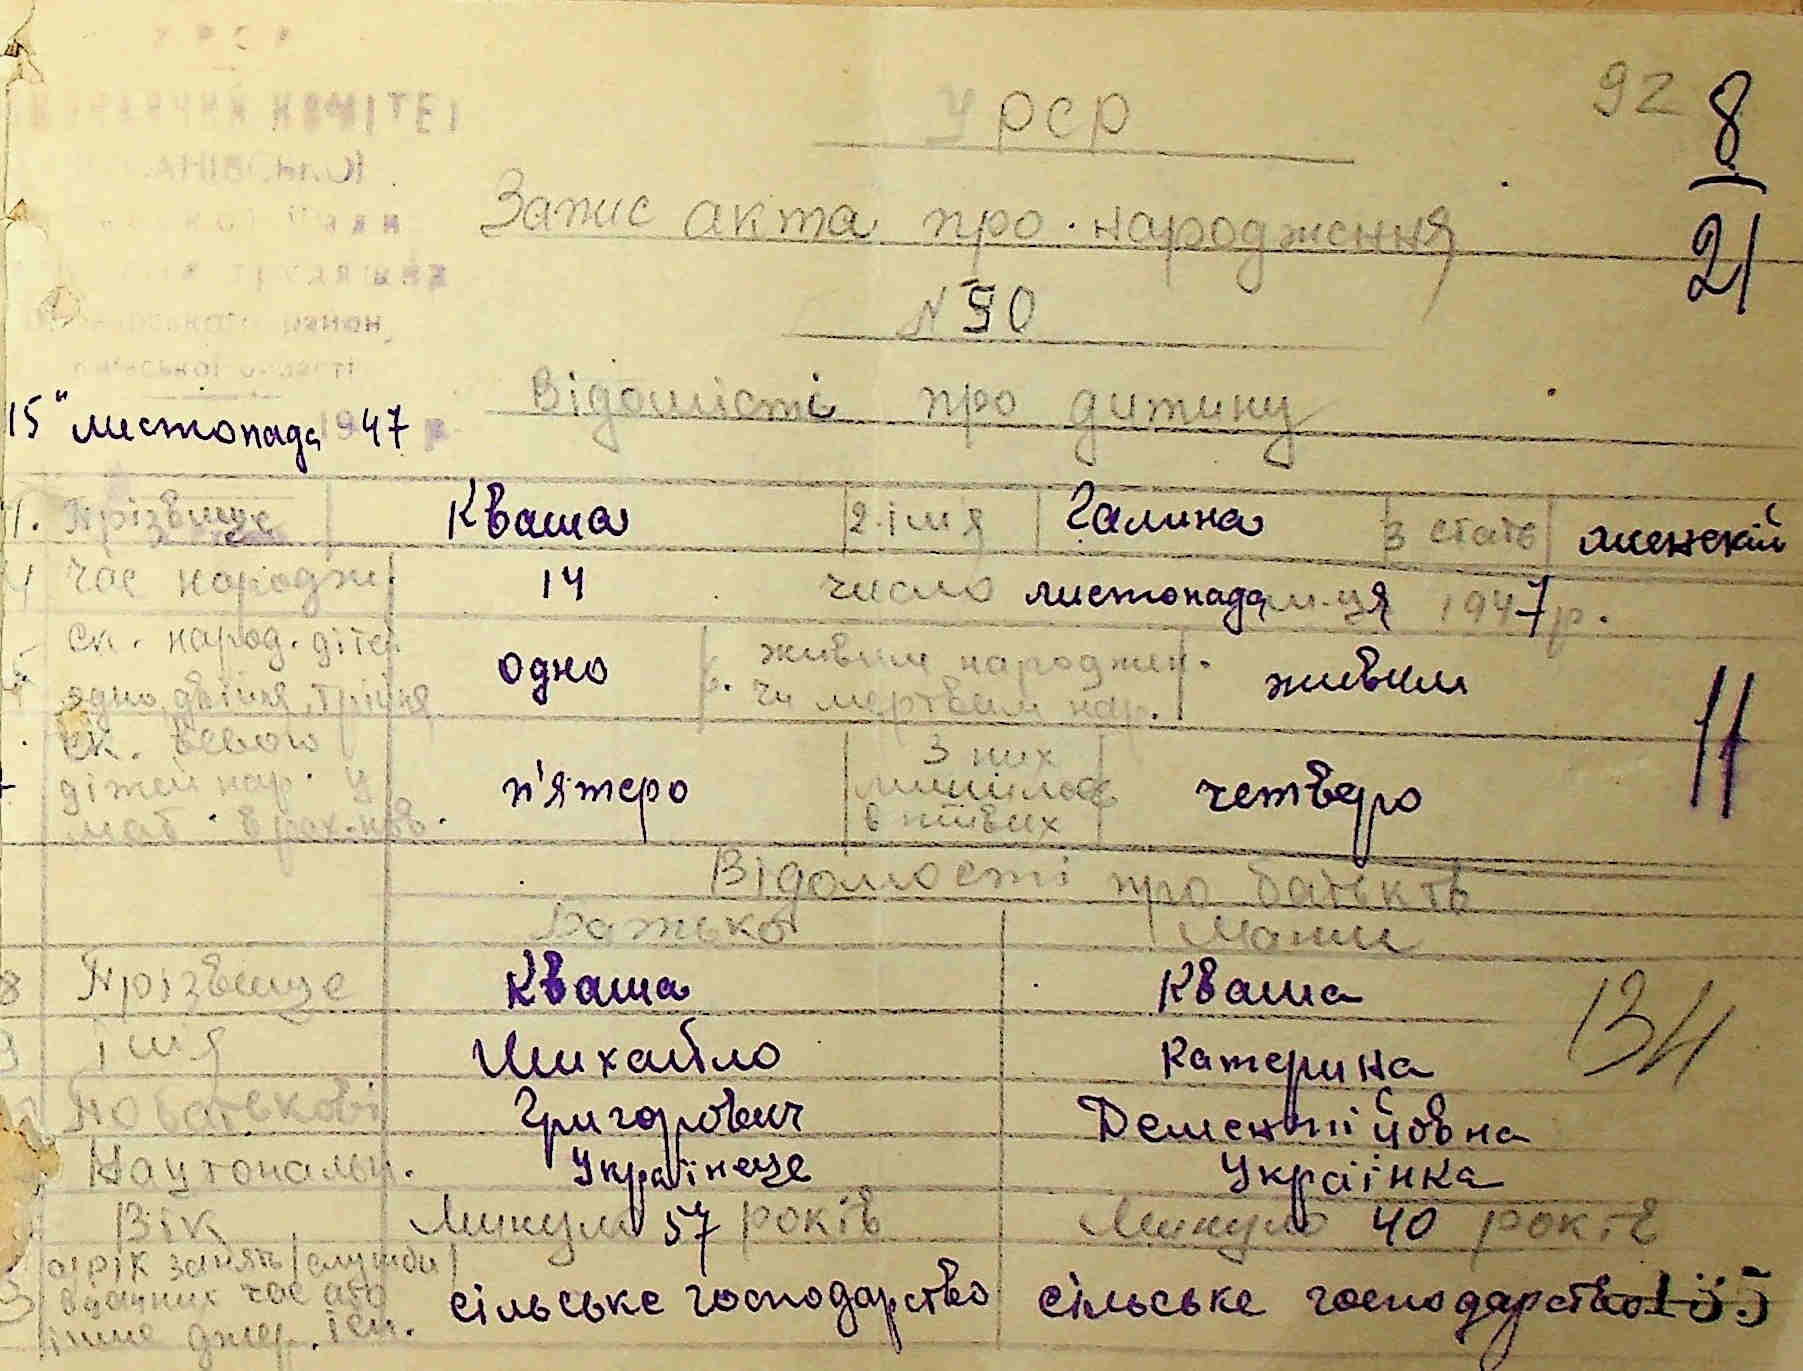 УРСР
92
8
21
УРСР
КОМІТЕТ
Запис акта про народження
№ 90
Відомисті про дитину
15" листопада 1947 р.
1. Прізвище Кваша 2. імя Галина 3 стать женскій
4 час народж 14 число листопада м-ця 1947 р.
5 ск. народ. дітей одно, двійня, трійня одно 6. живим народжен. чи мертвим нар. живим
11
ск. всього дітей нар. у мат. врах. нов. п'ятеро З них лишилось в живих четверо
Відомості про батьків
Батько Мати
8 Прізвище Кваша Кваша
9 імя Михайло Катерина
134
По батькові Григорович Дементійовна
Національн. Українеце Українка
Вік Минуло 57 років Минуло 40 років
сільське господарство сільське господарство
інше джер. існ.